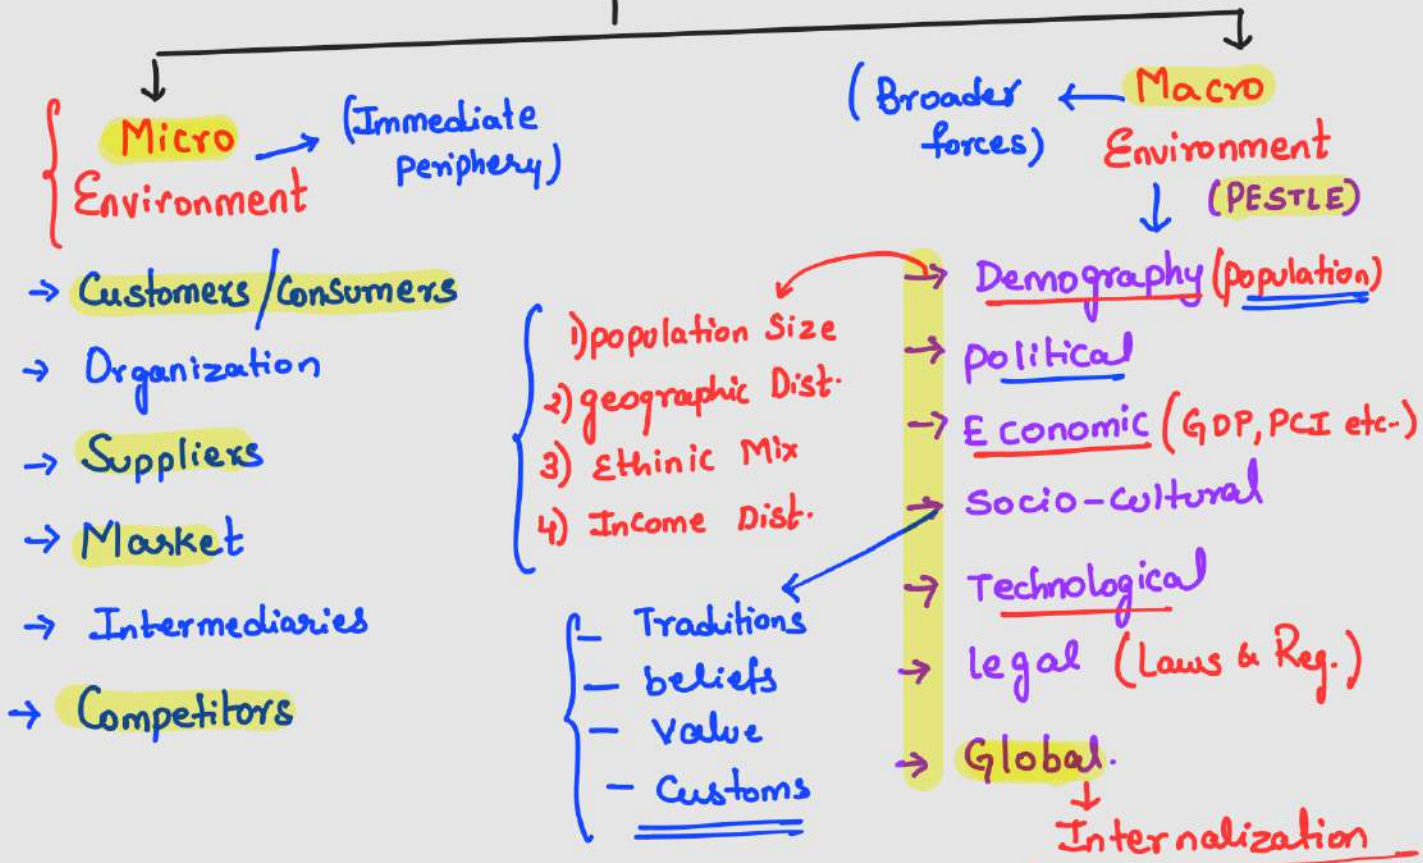 Micro
Environment
(Immediate
periphery)
→ Customers/Consumers
→ Organization
→ Suppliers
→ Market
→ Intermediaries
→ Competitors
(Broader
forces)
Macro
Environment
(PESTLE)
→ Demography (population)
→ political
→ Economic (GDP, PCI etc..)
→ Socio-cultural
→ Technological
→ legal (Laws & Reg.)
→ Global.
Internalization
1) population Size
2) geographic Dist.
3) Ethinic Mix
4) Income Dist.
– Traditions
– beliefs
– Value
– Customs